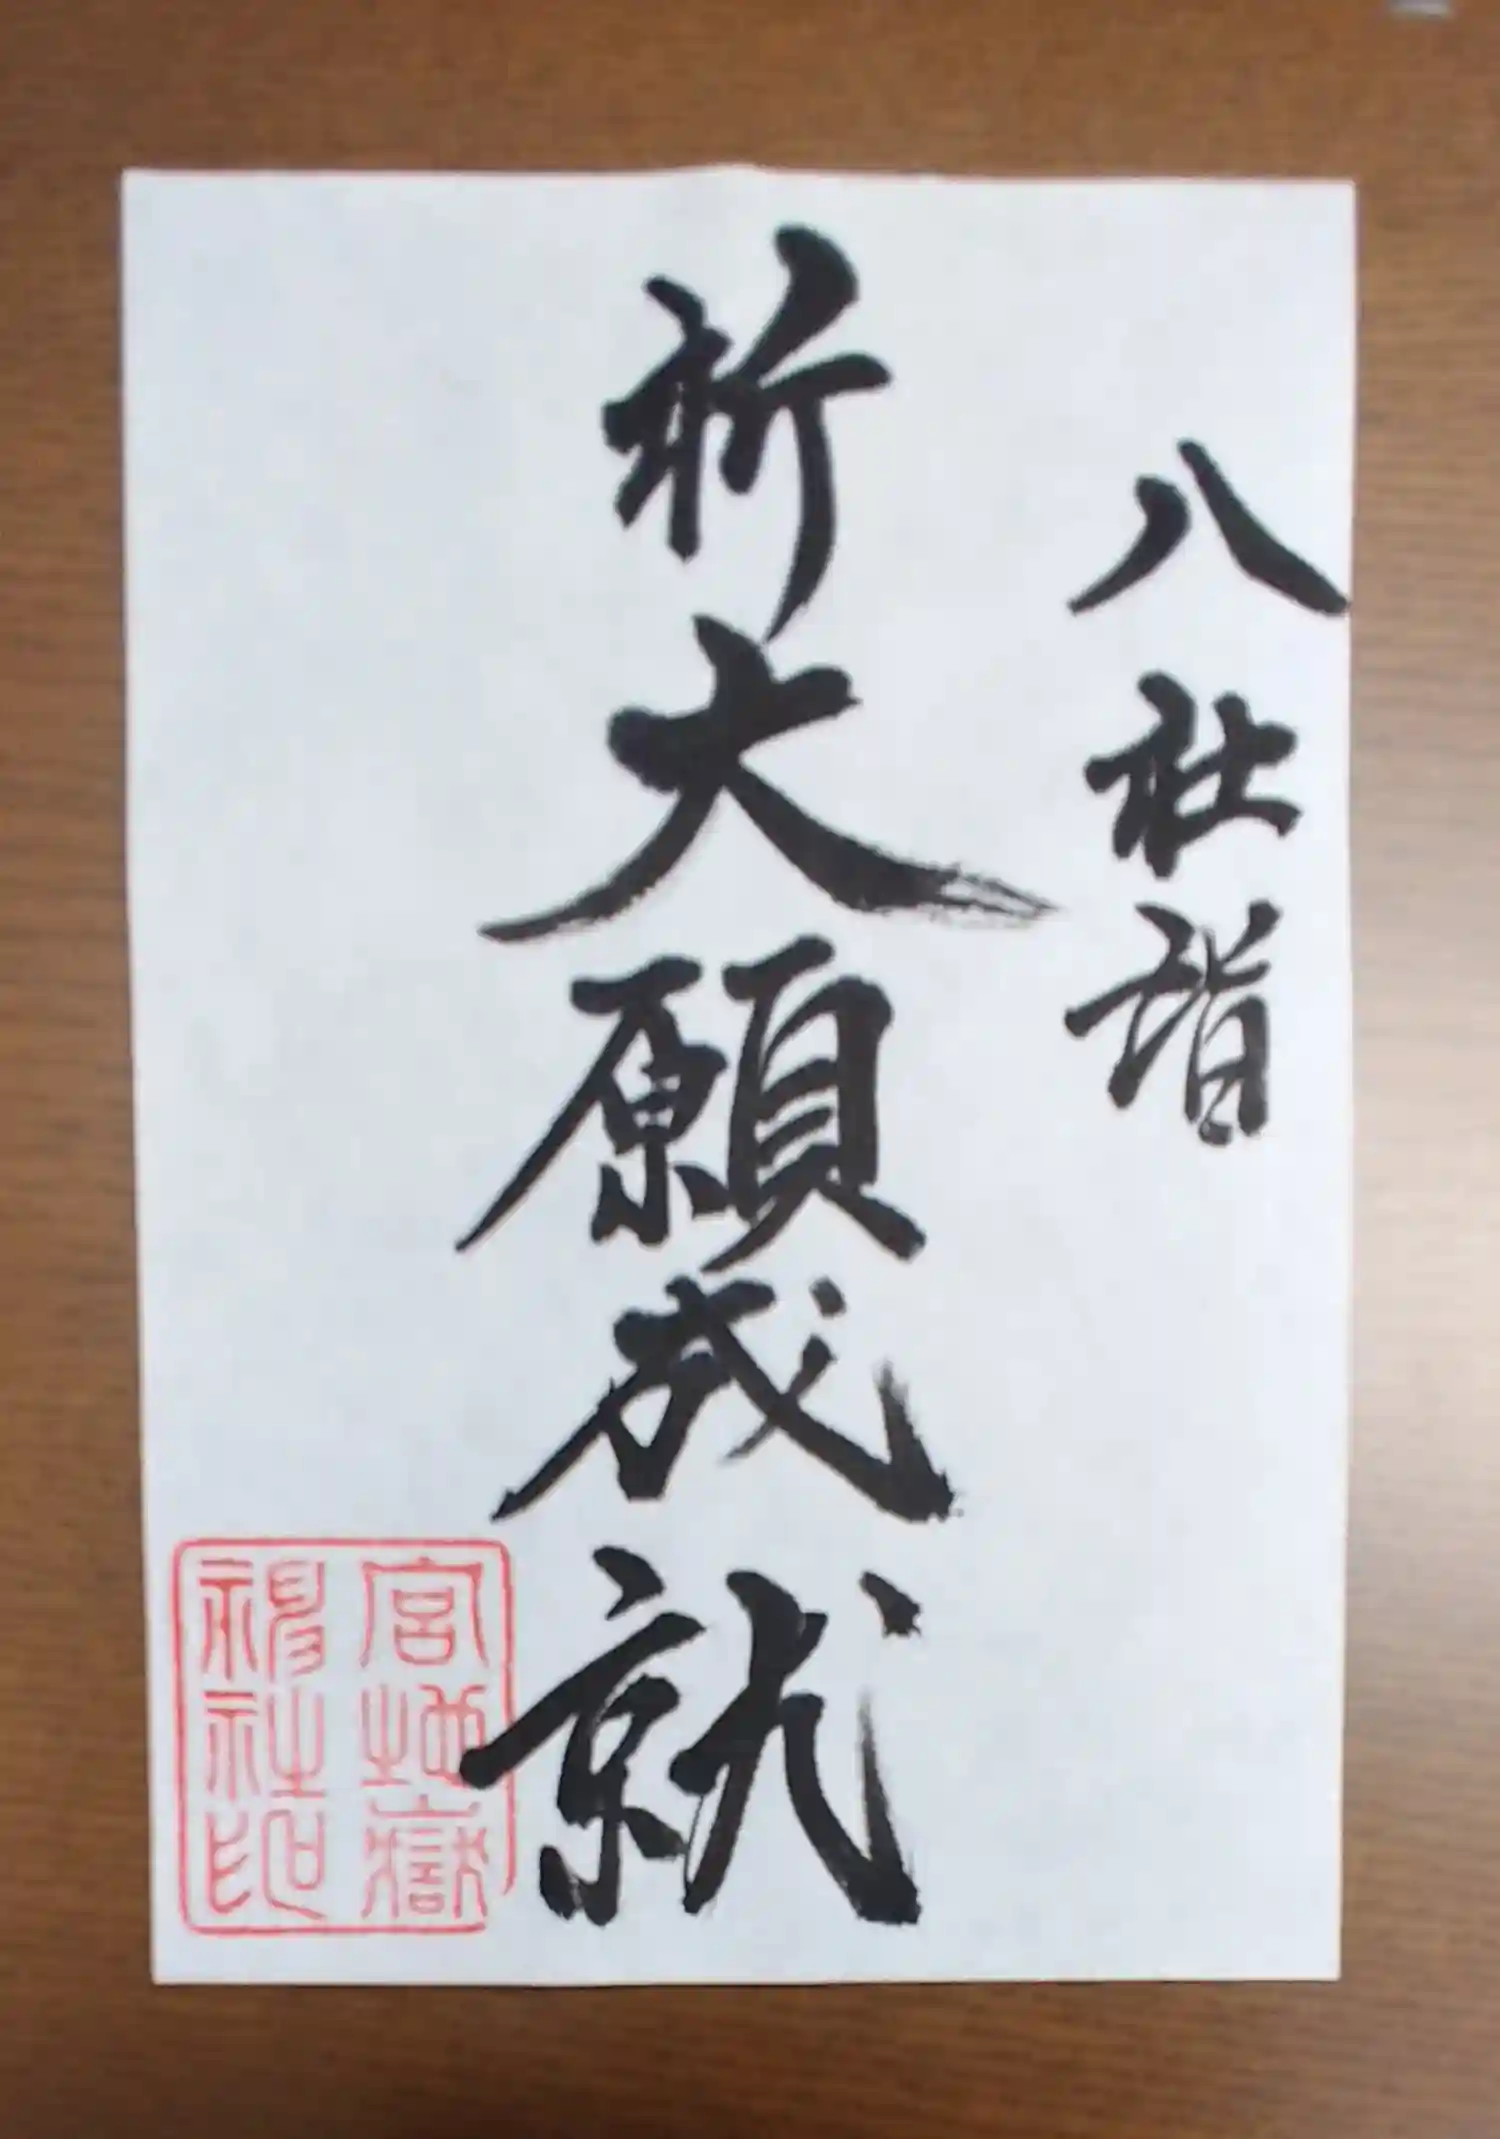 八社詣
祈大願成就
宮地嶽
神社印